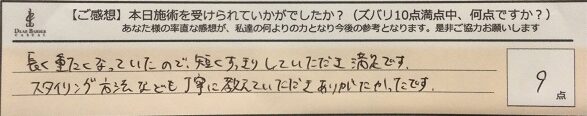 【ご感想】本日施術を受けられていかがでしたか？（ズバリ10点満点中、何点ですか？）
あなた様の率直な感想が、私達の何よりの力となり今後の参考となります。是非ご協力お願いします
DEAR BARBER
長く重たくなっていたので、短くすっきりしていただき満足です。
スタイリング方法なども丁寧に教えていただきありがたかったです。
9点